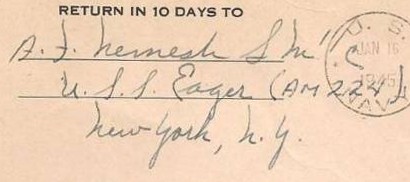 RETURN IN 10 DAYS TO
A. F. Nemesh S M
U. S. S. Eager (AM 224)
New York, N. Y.
U. S.
JAN 16
1945
NAVY